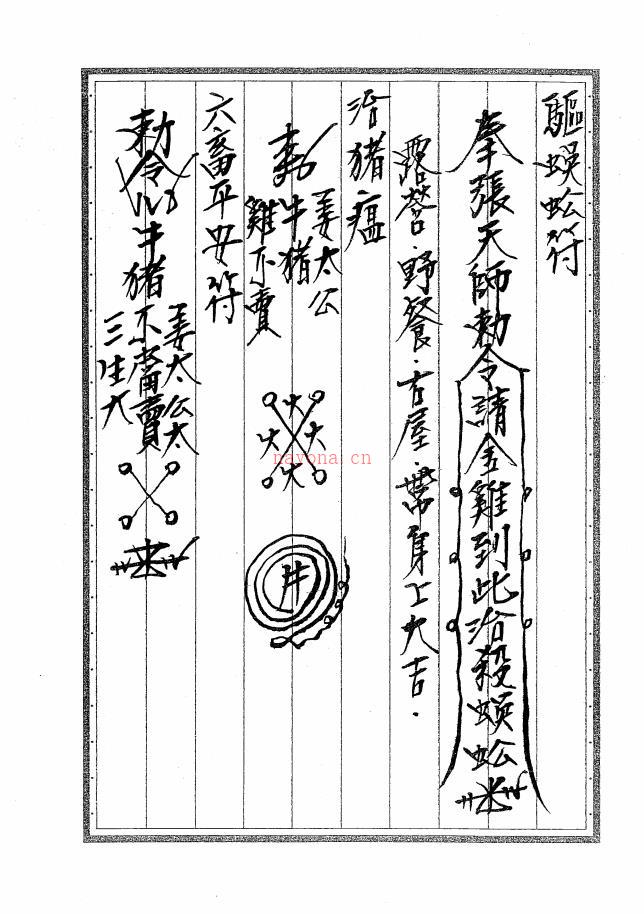 驅蜈蚣符
奉張天師勅令請金雞到此治殺蜈蚣
露營·野餐·古屋·帶身上大吉·
治豬瘟
姜太公
牛豬
雞不賣
井
六畜平安符
勅令
牛豬不畜賣
姜太公
三生
nayona.cn